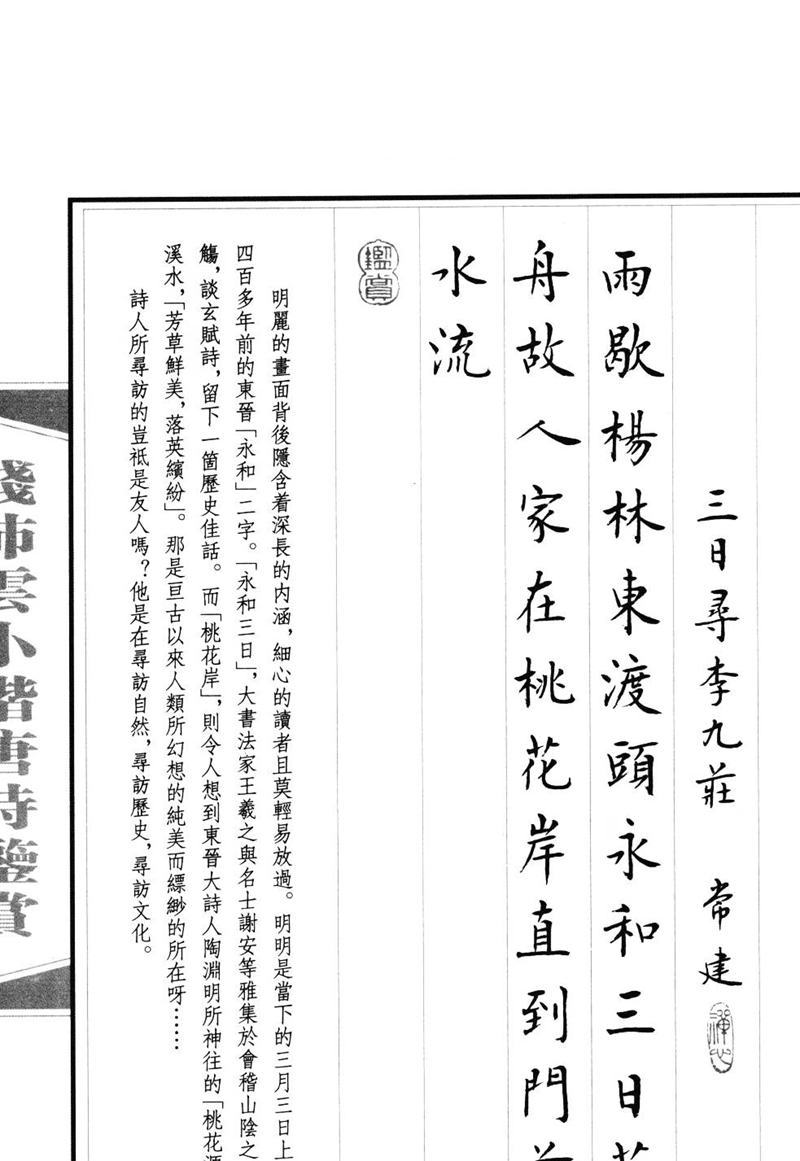 三日尋李九莊 常建
禪心
雨歇楊林東渡頭永和三日
舟故人家在桃花岸直到門
水流
鑑賞
明麗的畫面背後隱含着深長的内涵，細心的讀者且莫輕易放過。明明是當下的三月三日上
四百多年前的東晉「永和」二字。「永和三日」，大書法家王羲之與名士謝安等雅集於會稽山陰之
觴，談玄賦詩，留下一箇歷史佳話。而「桃花岸」，則令人想到東晉大詩人陶淵明所神往的「桃花源
溪水，「芳草鮮美，落英繽紛」。那是亘古以來人類所幻想的純美而縹緲的所在呀……
詩人所尋訪的豈祇是友人嗎？他是在尋訪自然，尋訪歷史，尋訪文化。
錢沛雲小楷唐詩鑒賞